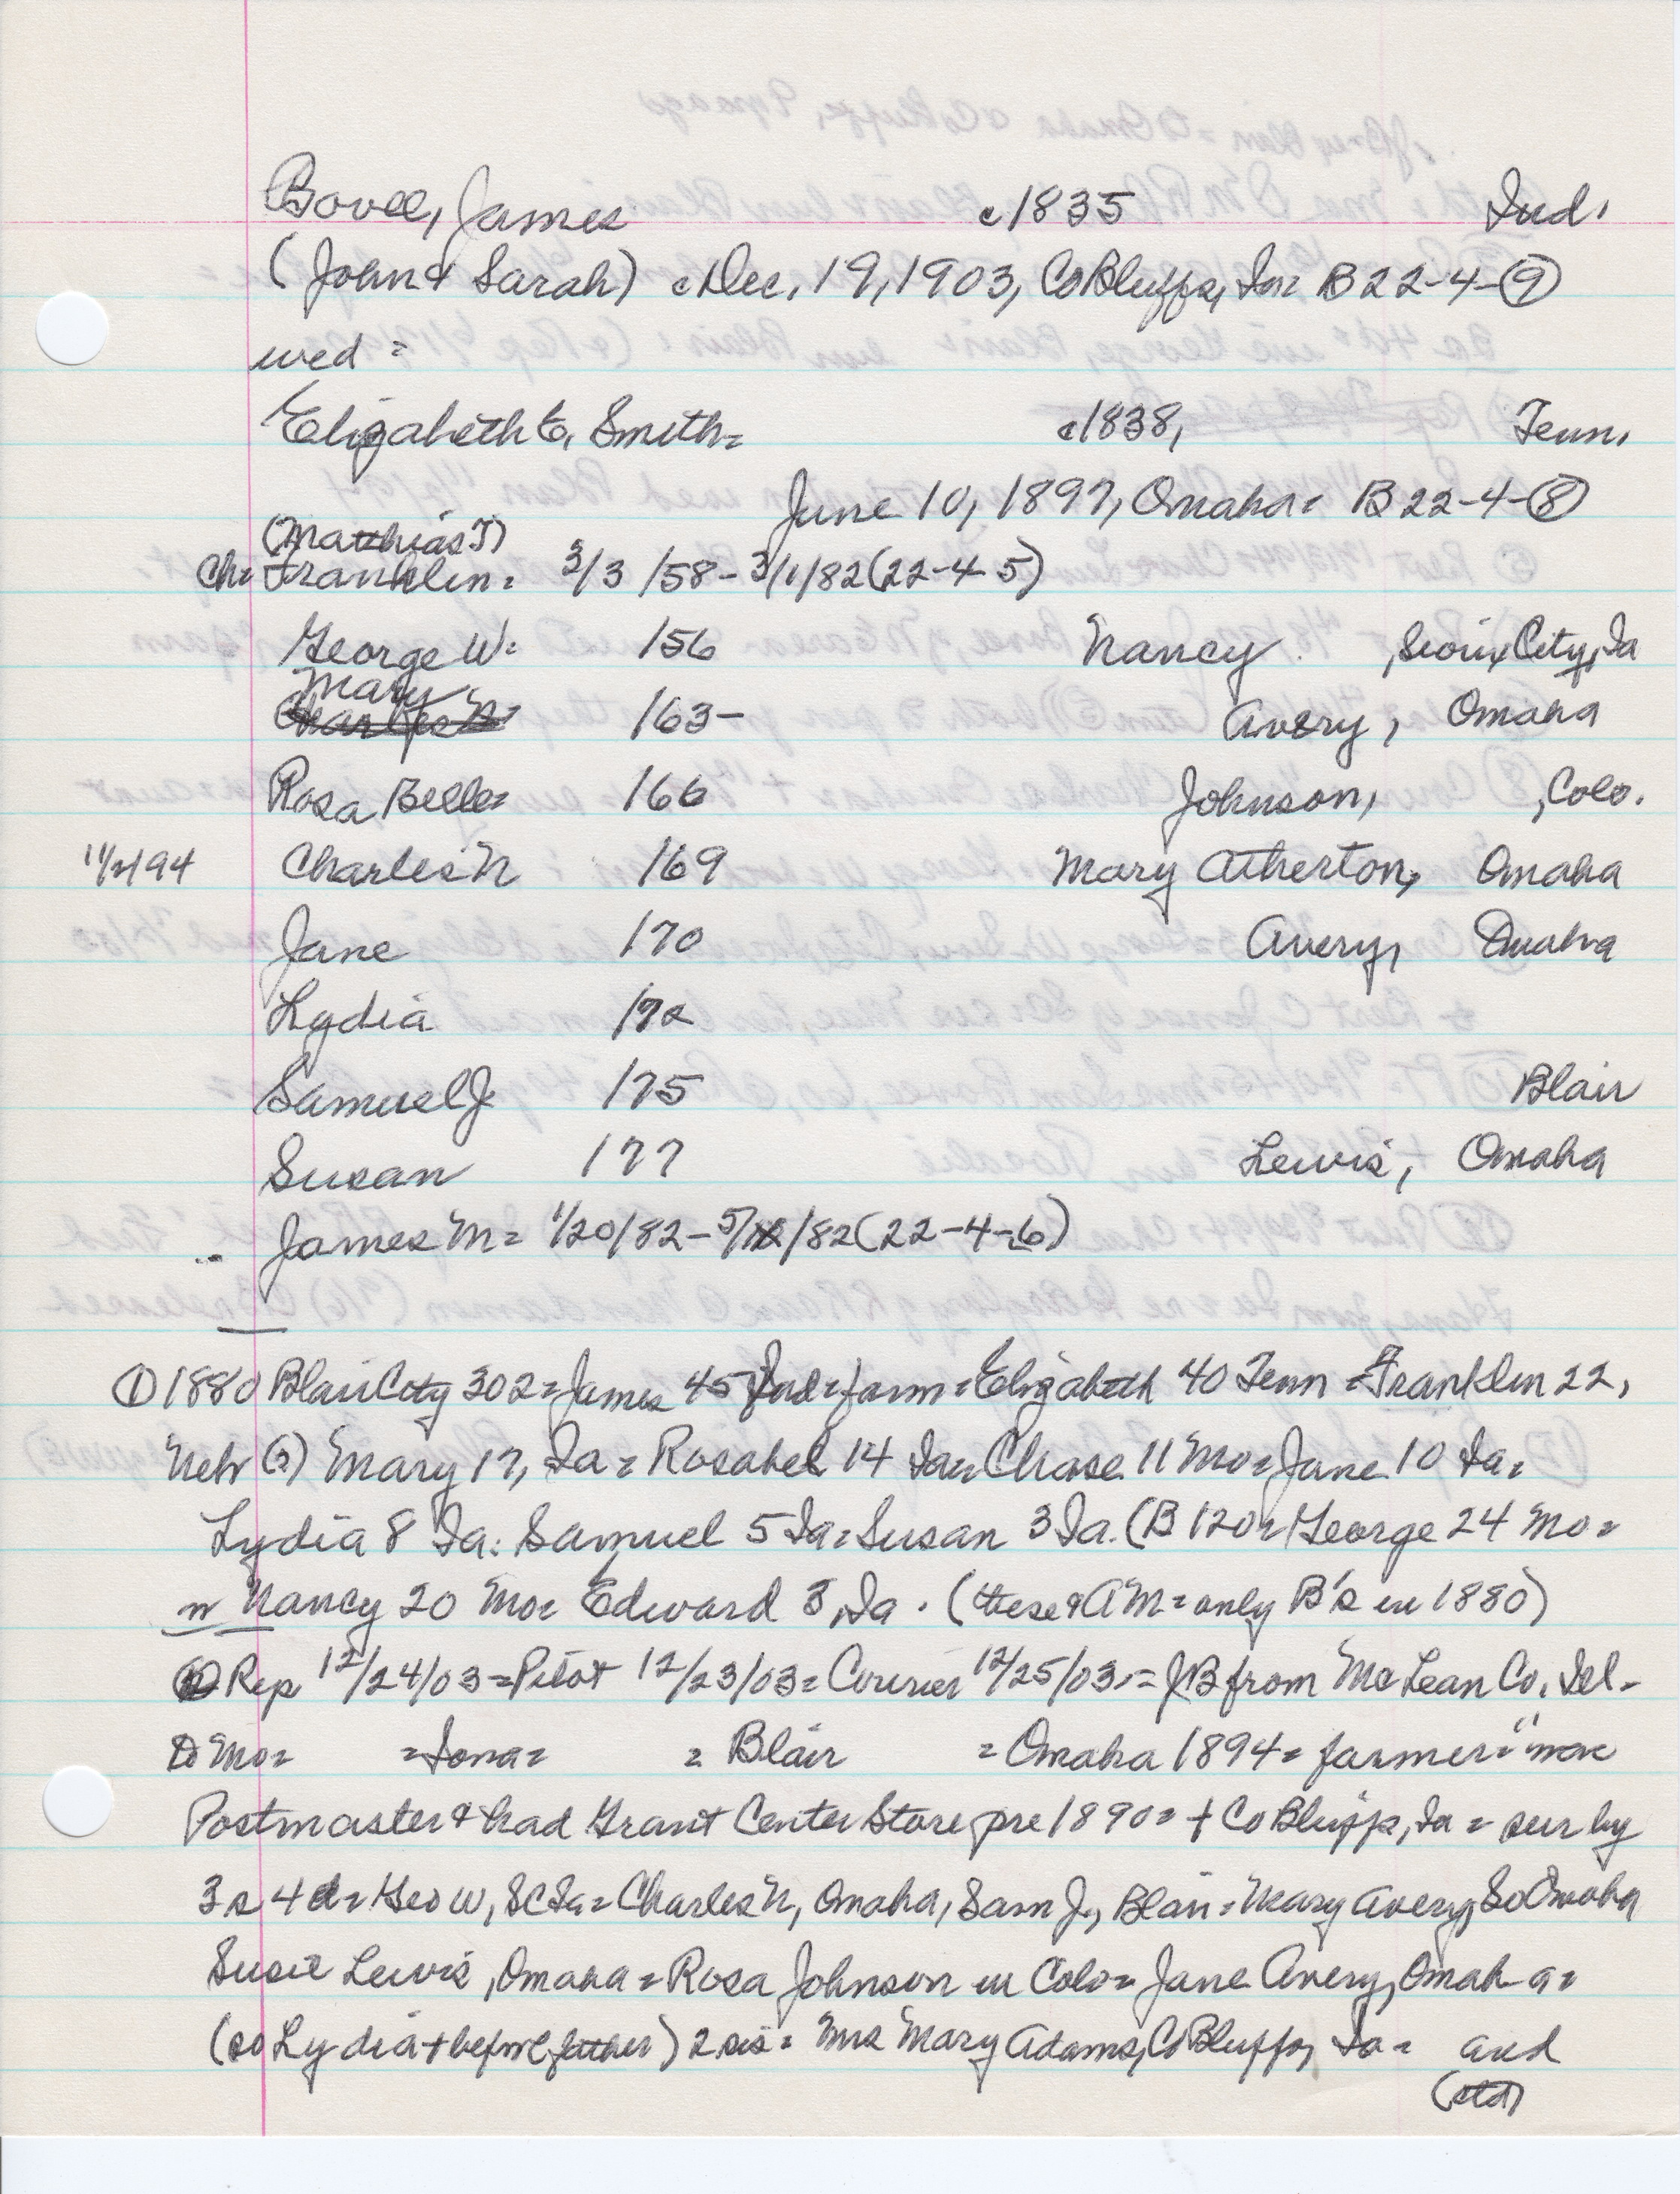 Bovee, James c1835 Ind.
(John & Sarah) c Dec. 19, 1903, Co Bluffs, Ia= B 22-4-⑨
wed =
Elizabeth E. Smith= c1838, Tenn.
June 10, 1897, Omaha= B 22-4-⑧
(Matthias T)
Ch= Franklin= 3/3/58-3/1/82 (22-4-5)
George W= '56 Nancy , Sioux City, Ia
Mary
Charles N= '63- Avery, Omaha
Rosa Belle= '66 Johnson, , Colo.
11/2/94 Charles N '69 Mary Atherton, Omaha
Jane '70 Avery, Omaha
Lydia '72
Samuel J '75 Blair
Susan '77 Lewis, Omaha
James M= 1/20/82-5/ /82 (22-4-6)
① 1880 Blair City 302= James 45 Ind= farm= Elizabeth 40 Tenn= Franklin 22,
Nebr (?) Mary 17, Ia= Rosabel 14 Ia= Chase 11 Mo= Jane 10 Ia=
Lydia 8 Ia= Samuel 5 Ia= Susan 3 Ia. (B 120= George 24 Mo=
w Nancy 20 Mo= Edward 3, Ia. (these & AM= only B's in 1880)
② Rep 12/24/03= Pilot 12/23/03= Courier 12/25/03= JB from McLean Co. Ill-
to Mo= =Iowa= = Blair = Omaha 1894= farmer=
Postmaster & had Grant Center Store pre 1890= + Co Bluffs, Ia= sur by
3s 4d= Geo W, SC Ia= Charles N, Omaha, Sam J, Blair= Mary Avery, So Omaha
Susie Lewis, Omaha= Rosa Johnson in Colo= Jane Avery, Omaha=
(so Lydia + before father) 2 sis= Mrs Mary Adams, Co Bluffs, Ia= and
(ctd)